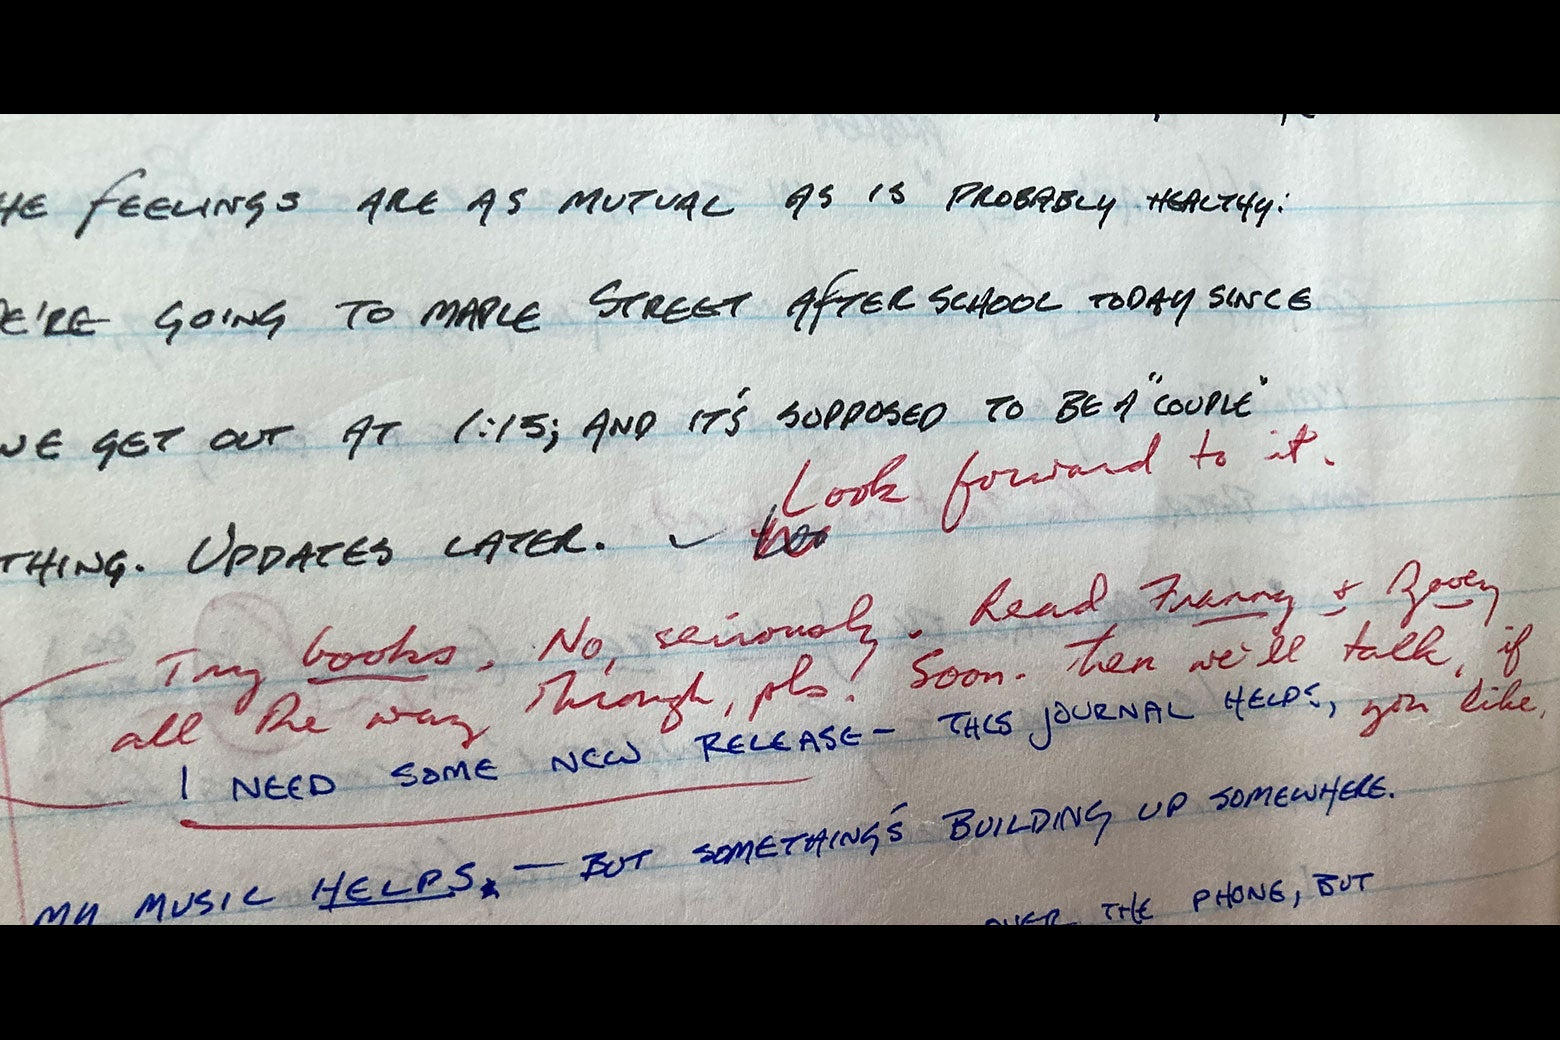 HE FEELINGS ARE AS MUTUAL AS IS PROBABLY HEALTHY:
E'RE GOING TO MAPLE STREET AFTER SCHOOL TODAY SINCE
WE GET OUT AT 1:15; AND IT'S SUPPOSED TO BE A "COUPLE"
Look forward to it.
THING. UPDATES LATER.
Try books. No, seriously. Read Franny & Zooey
all the way through, pls! Soon. Then we'll talk, if
you like.
I NEED SOME NEW RELEASE – THIS JOURNAL HELPS,
MY MUSIC HELPS, – BUT SOMETHING'S BUILDING UP SOMEWHERE.
OVER THE PHONE, BUT